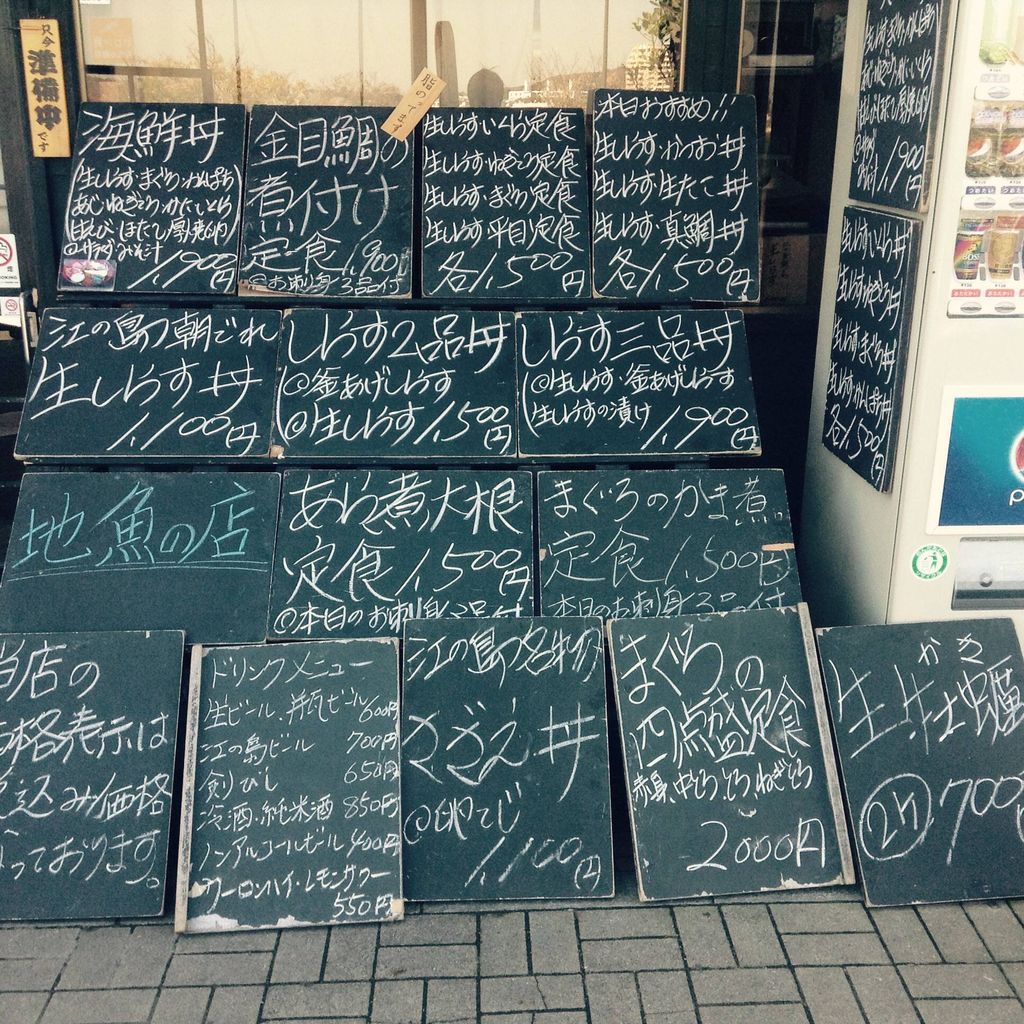 只今
準備中
です
海鮮丼
生しらす・まぐろ・かんぱち
あじ・ねぎとろ・かに・いくら
甘えび・ほたて・厚焼玉
1,900円
脂のってます
金目鯛の
煮付け
定食 1,900円
@お刺身3品付
生しらす・いくら定食
生しらす・ねぎとろ定食
生しらす・まぐろ定食
生しらす・平目定食
各1,500円
本日おすすめ!!
生しらす・かつお丼
生しらす・生たこ丼
生しらす・真鯛丼
各1,500円
1,900円
生しらす・いくら丼
生しらす・ねぎとろ丼
生しらす・まぐろ丼
生しらす・かんぱち丼
各1,500円
江の島の朝どれ
生しらす丼
1,100円
しらす2品丼
@釜あげしらす
@生しらす 1,500円
しらす三品丼
@生しらす・釜あげしらす
生しらすの漬け
1,900円
地魚の店
あら煮大根
定食 1,500円
@本日のお刺身3品付
まぐろのかま煮
定食 1,500円
本日のお刺身3品付
当店の
価格表示は
税込み価格
なっております。
ドリンクメニュー
生ビール、井瓦ビール 600円
江の島ビール 700円
剣びし 650円
冷酒・純米酒 850円
ノンアルコールビール 400円
ウーロンハイ・レモンサワー
550円
江の島の名物
さざえ丼
@卵とじ
1,100円
まぐろの
四点盛定食
赤身、中とろ、とろ、ねぎとろ
2000円
かき
生牡蠣
2ケ 700円